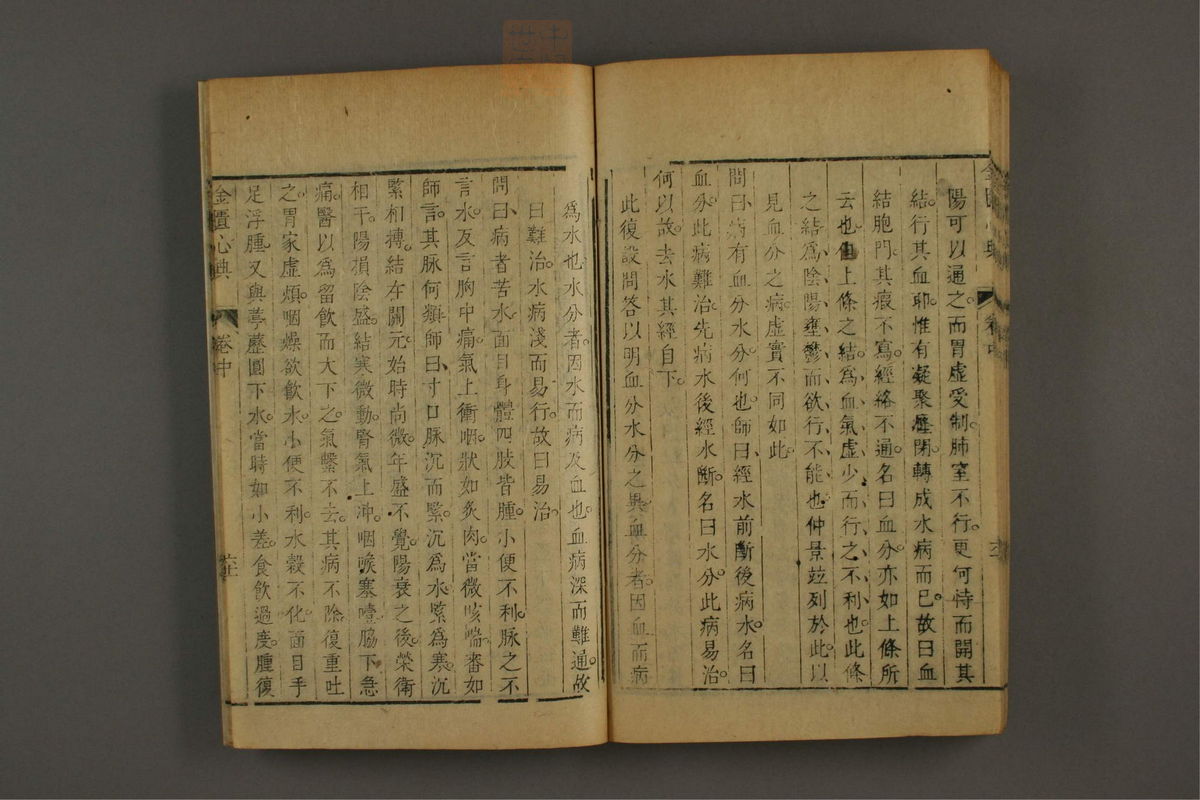 陽可以通之。而胃虛受制。肺室不行。更何恃而開其
結。行其血耶。惟有凝聚壅閉。轉成水病而已。故曰血
結胞門。其瘕不寫。經絡不通。名曰血分。亦如上條所
云也。但上條之結。爲血氣虛少而行之不利也。此條
之結。爲陰陽壅鬱而欲行不能也。仲景竝列於此。以
見血分之病。虛實不同如此。
問曰。病有血分水分。何也。師曰。經水前斷後病水。名曰
血分。此病難治。先病水後經水斷。名曰水分。此病易治。
何以故。去水其經自下。
此復設問答以明血分水分之異。血分者。因血而病
爲水也。水分者。因水而病及血也。血病深而難通。故
曰難治。水病淺而易行。故曰易治。
問曰。病者苦水。面目身體四肢皆腫。小便不利。脉之不
言水。反言胸中痛。氣上衝咽。狀如炙肉。當微咳喘。審如
師言。其脉何類。師曰。寸口脉沉而緊。沉爲水。緊爲寒。沉
緊相搏。結在關元。始時尚微。年盛不覺。陽衰之後。榮衛
相干。陽損陰盛。結寒微動。腎氣上冲。咽喉塞噎。脇下急
痛。醫以爲留飲而大下之。氣繫不去。其病不除。復重吐
之。胃家虛煩。咽燥欲飲水。小便不利。水穀不化。面目手
足浮腫。又與葶藶圓下水。當時如小差。食飲過度。腫復
金匱心典
卷中